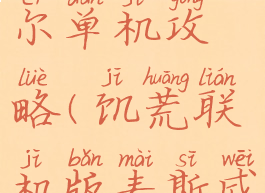 ěr dān jī gōng
尔单机攻
lüè jī huāng lián
略(饥荒联
jī bǎn mài sī wēi
机版麦斯威